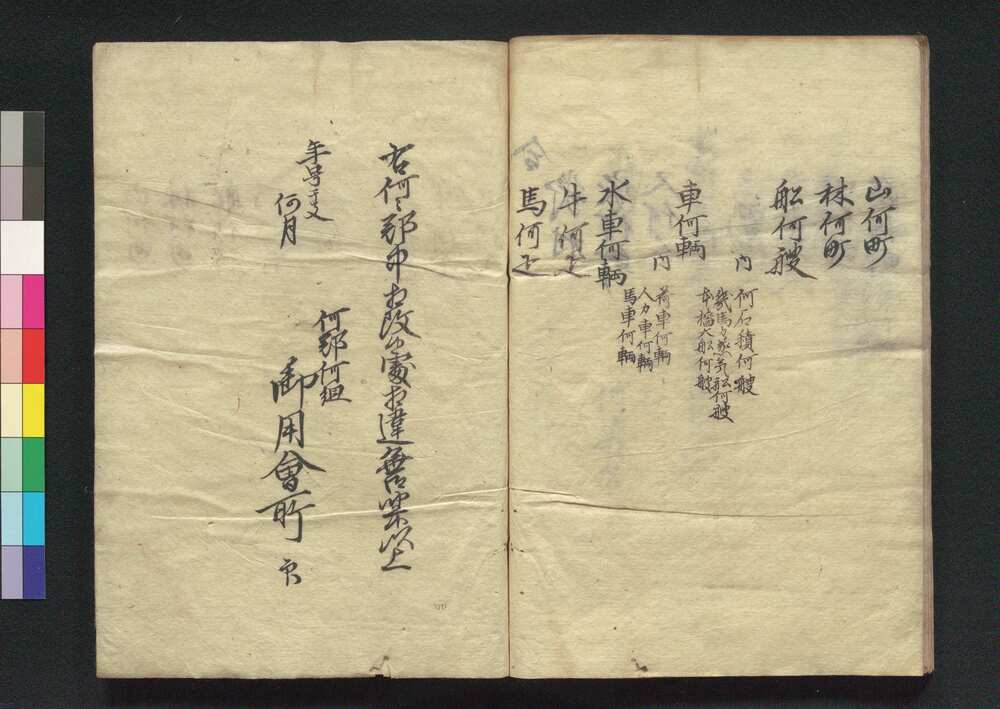 山何町
林何町
船何艘
内
何石積何艘
幾馬力蒸気船何艘
五十檣大船何艘
車何輌
内
荷車何輌
人力車何輌
馬車何輌
水車何輌
牛何疋
馬何疋
右何々郡中相改候処相違無御座候以上
年号干支
何月
何郡何組
御用会所 印